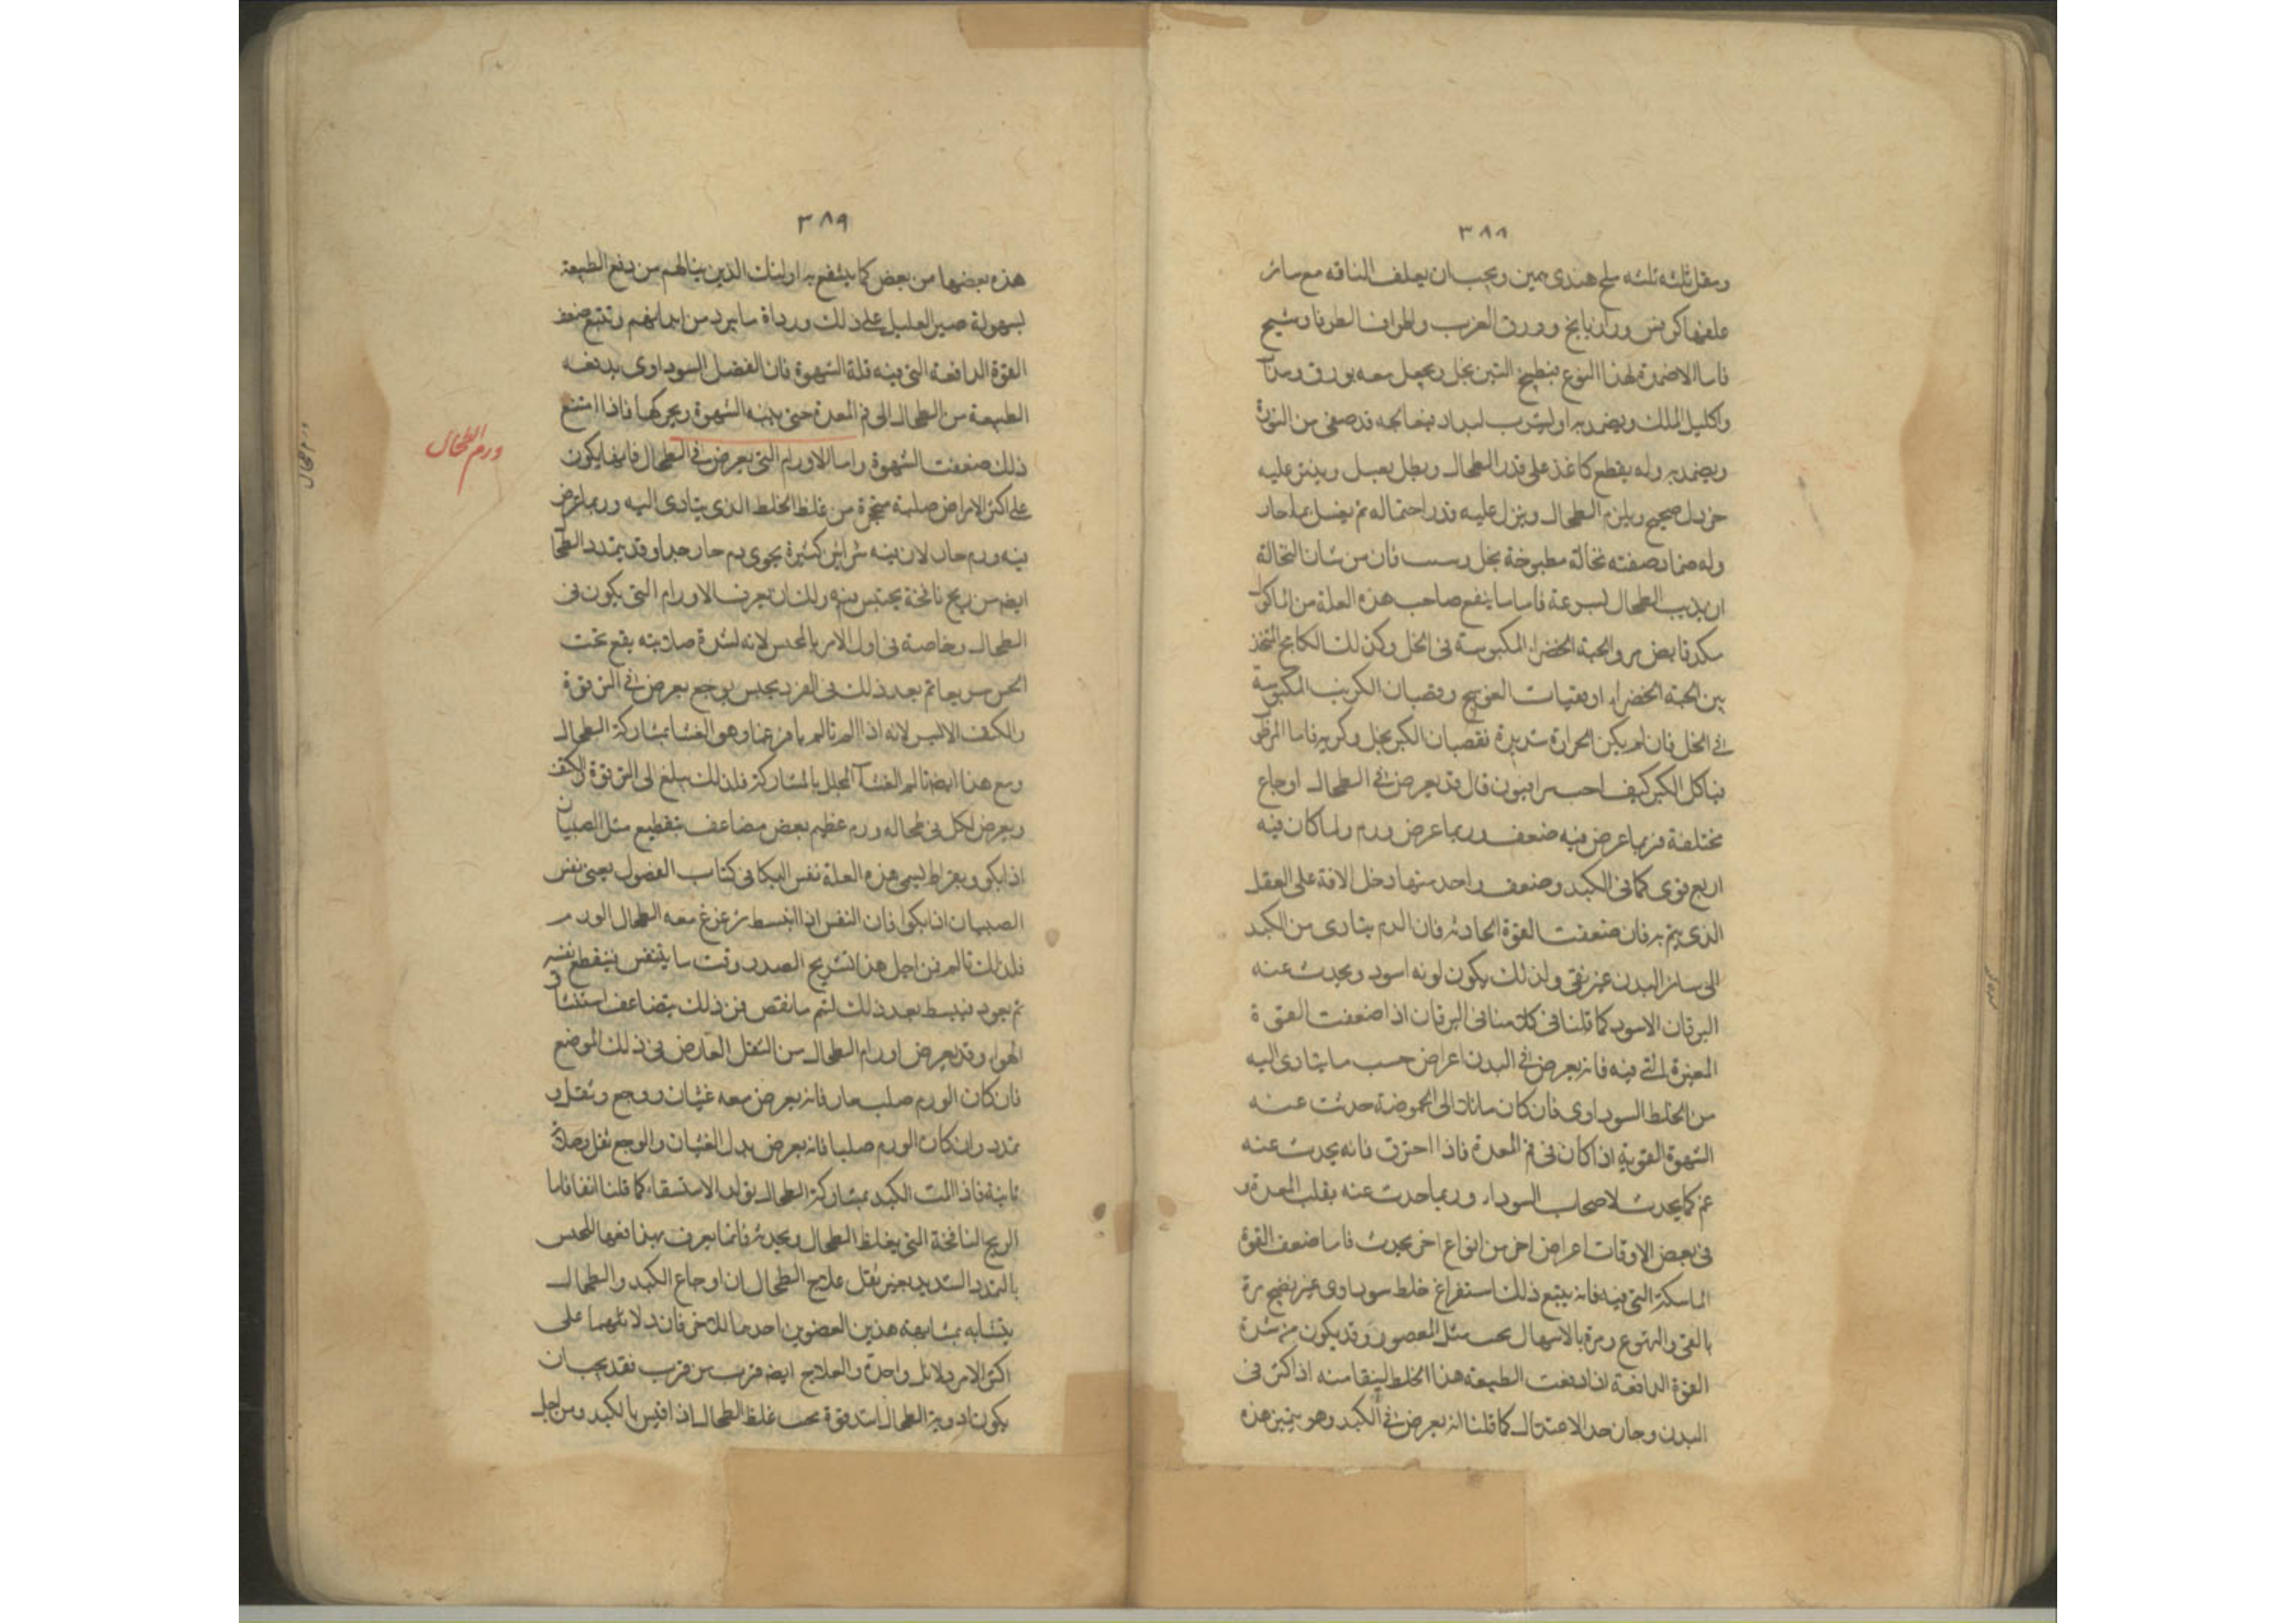 ٣٨٨
ومقل ثلثه ثلثه ملح هندى ويجب ان يعلف الناقه مع سائر
علفها كرفس ورازيانج وورق الغرب واطراف الطرفا وشيح
فاما الاضمدة لهذا النوع فيطبخ التين بخل ويجعل معه بورق
واكليل الملك ويضمد به او يشرب قد صفى من النورة
ويضمد به وله يقطع كاغذ على قدر الطحال ويطلى بعسل وينثر عليه
خردل صحيح ويلزم الطحال وينزل عليه قدر احتماله ثم يغسل بماء حار
وله ضماد صفته نخالة مطبوخة بخل فان من شان النخالة
ان يذيب الطحال بسرعة فاما ما ينفع صاحب هذه العلة من الماكول
والحبة الخضراء المكبوسة فى الخل وكذلك الكامخ المتخذ
من الحبة الخضراء وقضبان الكرنب المكبوسة
فى الخل فان لم يكن الحرارة شديدة فقضبان الكبر بخل
قال قد يعرض فى الطحال اوجاع
مختلفة فربما عرض فيه ضعف وربما عرض ورم ولما كان فيه
اربع قوى كما فى الكبد وضعف واحد منها دخل الافة على الفعل
الذى يتم به فان ضعفت القوة الجاذبة فان الدم يتادى من الكبد
الى سائر البدن غير نقى ولذلك يكون لونه اسود ويحدث عنه
اليرقان الاسود كما قلنا فى كلامنا فى اليرقان اذا ضعفت القوة
المغيرة التى فيه فانه يعرض فى البدن اعراض حسب ما يتادى اليه
من الخلط السوداوى فان كان مائلا الى الحموضة حدثت عنه
الشهوة القوية اذا كان فى فم المعدة فاذا احترق فانه يحدث عنه
غم كما يحدث لاصحاب السوداء وربما حدث عنه تقلب المعدة و
فى بعض الاوقات اعراض اخر من انواع اخر يحدث فاما ضعف القوة
الماسكة التى فيه فانه يتبع ذلك استفراغ خلط سوداوى غير نضيج مرة
بالقى والتهوع ومرة بالاسهال وقد يكون من شدة
القوة الدافعة اذا دفعت الطبيعة هذا الخلط لينقا منه اذا كثر فى
البدن وجاز حد الاعتدال كما قلنا انه يعرض فى الكبد وهو يتميز هذه
٣٨٩
هذه بعضها من بعض كما ينتفع به اولئك الذين ينالهم من دفع الطبيعة
بسهولة صبر العليل على ذلك ورداة ما يبرد من ابدانهم وتتبع ضعف
القوة الدافعة التى فيه قلة الشهوة فان الفضل السوداوى يدفعه
الطبيعة من الطحال الى فم المعدة حتى ينبه الشهوة ويحركها فاذا امتنع
ذلك ضعفت الشهوة واما الاورام التى يعرض فى الطحال فانها يكون
على اكثر الامراض صلبة متحجرة من غلظ الخلط الذى يتادى اليه وربما عرض
فيه ورم حار لان فيه شرايين كثيرة يحوى دم حار جدا وقد يتمدد الطحال
ايضا من ريح نافخة يحتبس فيه ولك ان تعرف الاورام التى يكون فى
الطحال وخاصة فى اول الامر بالمجس لانه لشدة صلابته يقع تحت
الحس سريعا ثم بعد ذلك يوجع يعرض فى الترقوة
والكتف الايسر لانه اذا الم تالم وهو الغشا بمشاركة الطحال
ومع هذا ايضا تالم الغشا المجلل بالمشاركة فلذلك يبلغ الى الترقوة والكتف
ويعرض لكل فى طحاله ورم عظيم بعض مضاعف ينقطع مثل الصبيان
اذا بكو وبقراط يسمى هذه العلة نفس البكا فى كتاب الفصول يعنى نفس
الصبيان اذا بكوا فان النفس اذا انبسط تزعزع معه الطحال الورم
فلذلك تالم فمن اجل هذا تشريح الصدر وقت ما يتنفس فينقطع نفسه
ثم يعود فينبسط بعد ذلك ليتم ما نقص فمن ذلك يتضاعف استنشاق
الهواء وقد يعرض اورام الطحال من الثقل العارض فى ذلك الموضع
فان كان الورم صلب حار فانه يعرض معه غثيان ووجع وثقل و
تمدد وان كان الورم صلبا فانه يعرض بدل الغثيان والوجع ثقل
فاذا المت الكبد بمشاركة الطحال تولد الاستسقاء كما قلنا انفا فاما
الريح النافخة التى يغلظ الطحال ويحدثه فانما يعرف بهذا دفعها للمجس
بالتمدد الشديد بغير ثقل علاج الطحال ان اوجاع الكبد والطحال
يتشابه بمشابهة هذين العضوين احدهما للاخر فان دلائلهما على
اكثر الامر دلائل واحدة والعلاج ايضا قرب من قرب فقد يجب ان
يكون ادوية الطحال اشد قوة بحسب غلظ الطحال اذا اقيس بالكبد ومن اجل
ورم الطحال